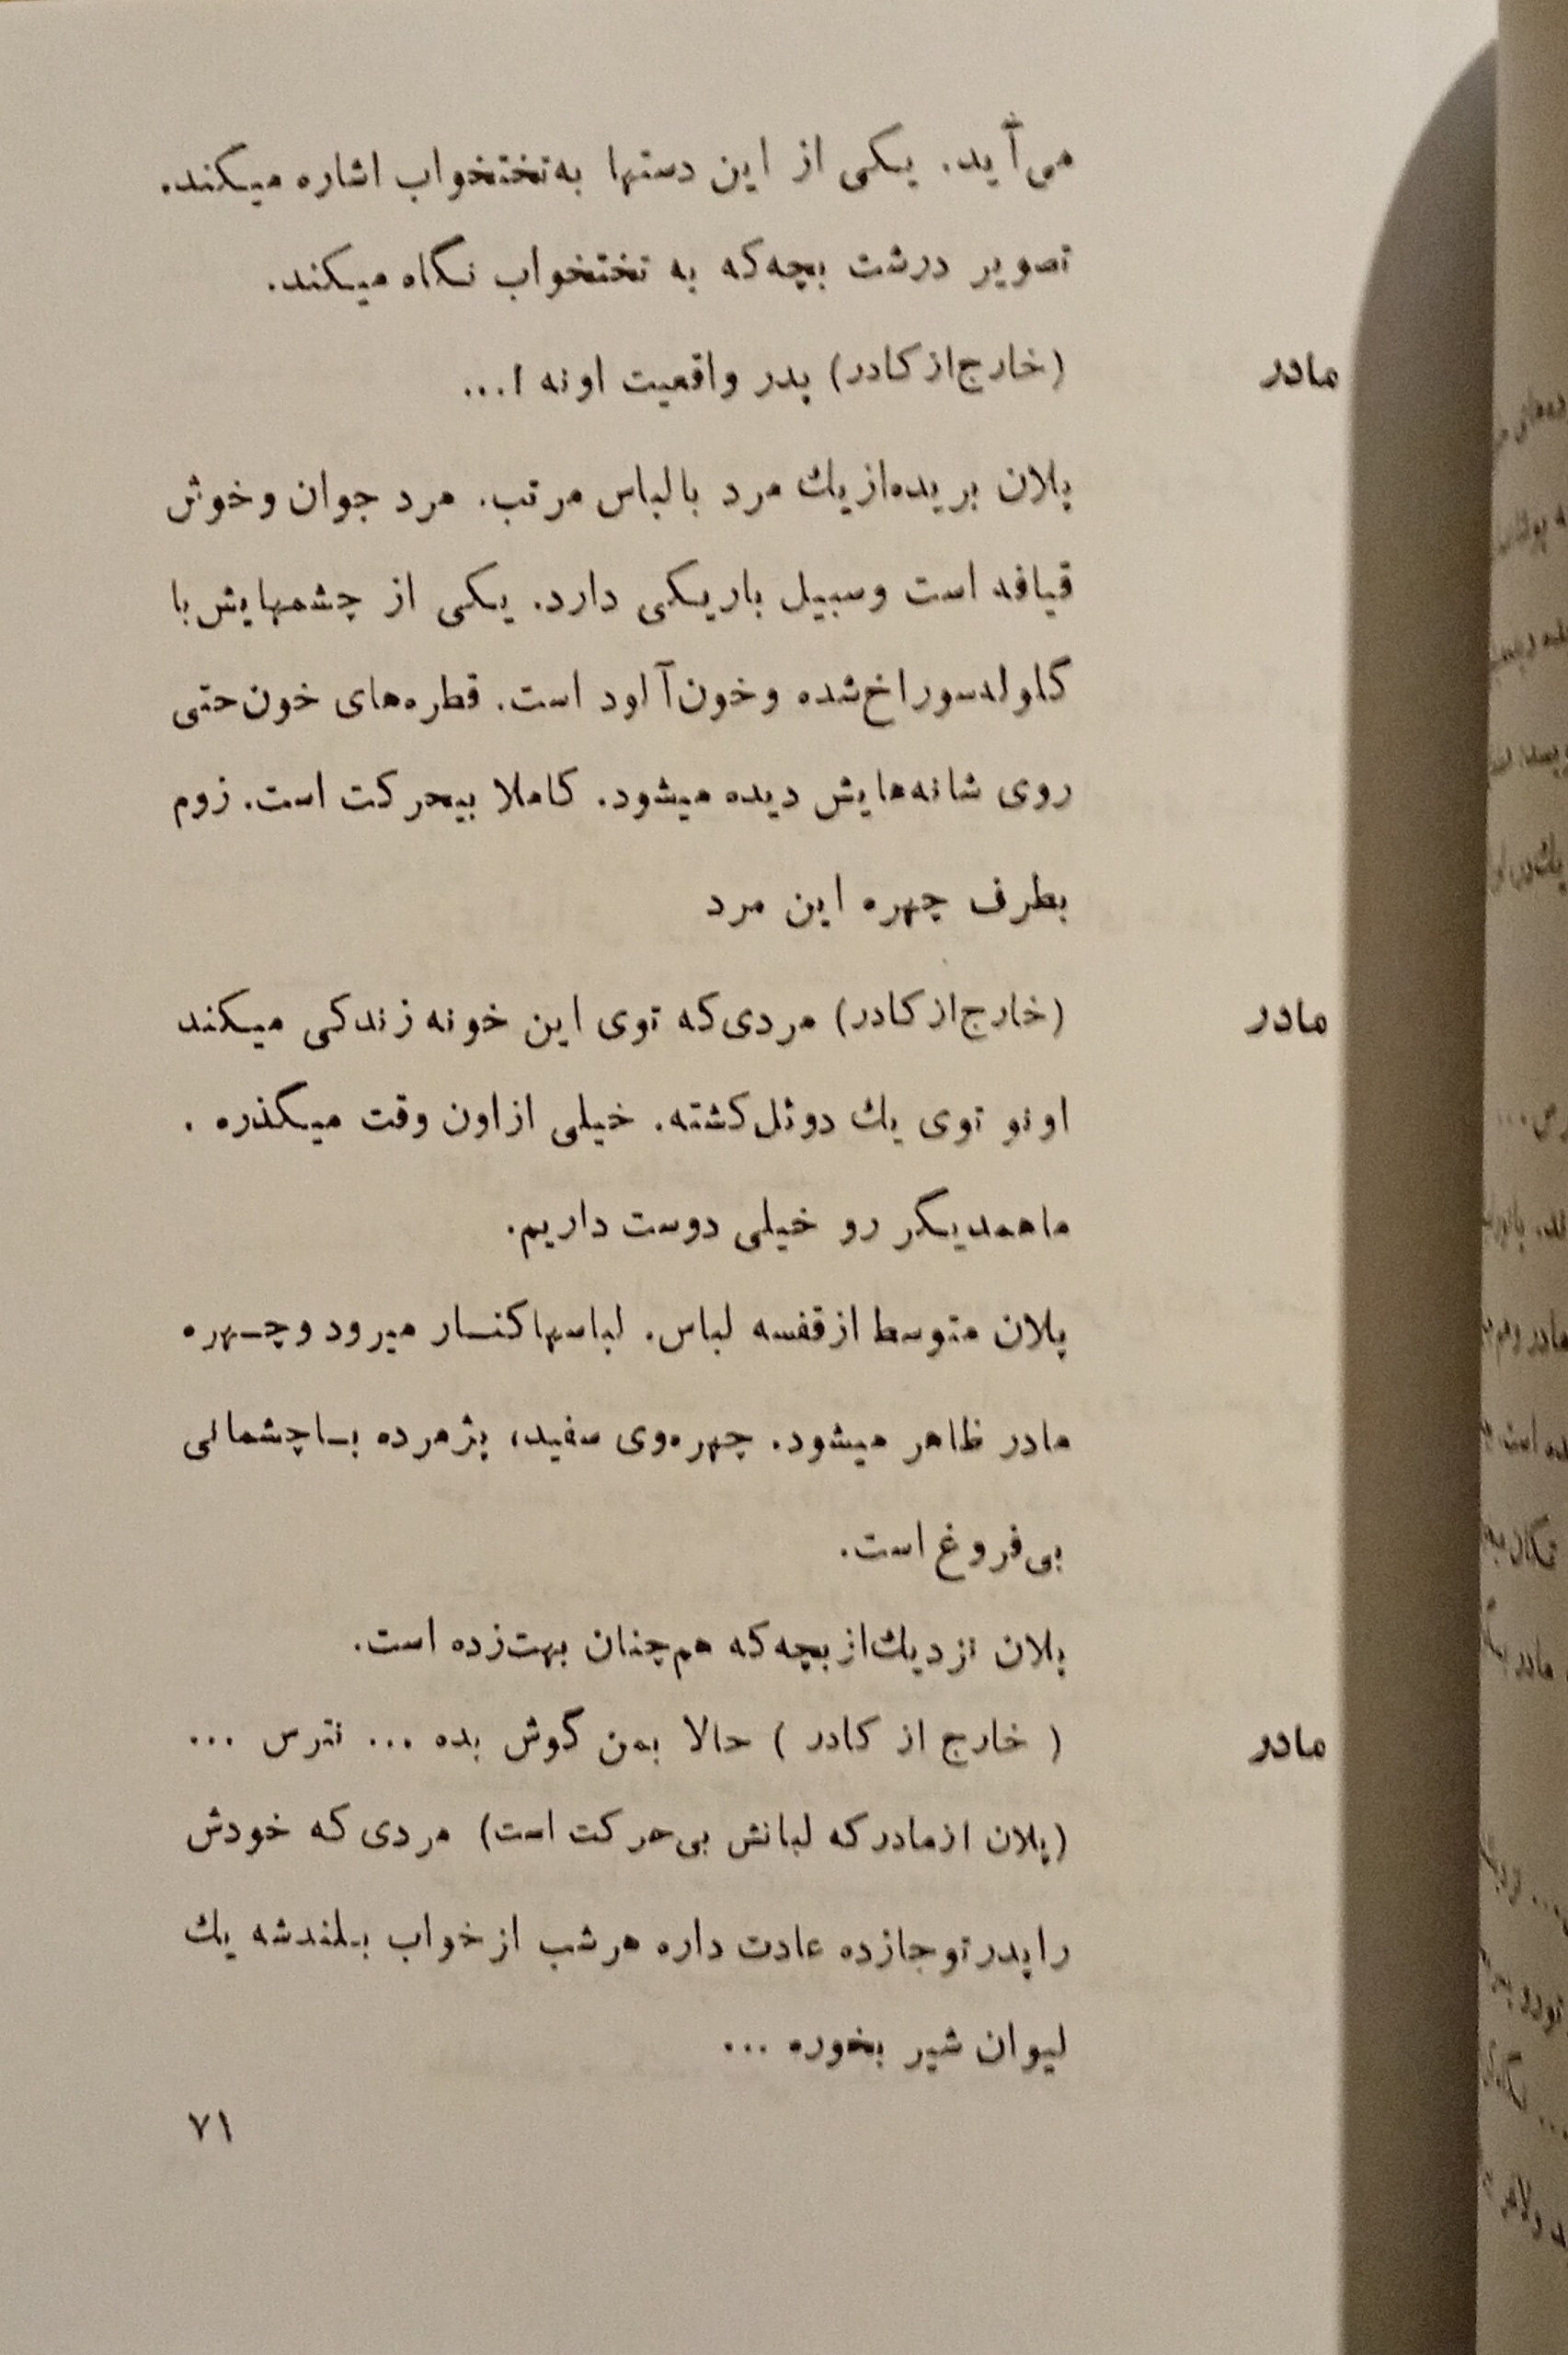 می‌آید. یکی از این دستها به‌تختخواب اشاره میکند.
تصویر درشت بچه‌که به تختخواب نگاه میکند.
مادر (خارج‌از کادر) پدر واقعیت اونه ا...
پلان بریده‌از یك مرد بالباس مرتب. مرد جوان وخوش
قیافه است وسبیل باریکی دارد. یکی از چشمهایش‌با
گلوله‌سوراخ‌شده وخون‌آلود است. قطره‌های خون‌حتی
روی شانه‌هایش دیده میشود. کاملا بیحرکت است. زوم
بطرف چهره این مرد
مادر (خارج‌از کادر) مردی‌که توی این خونه زندگی میکند
اونو توی یك دوئل‌کشته. خیلی ازاون وقت میگذره.
ماهمدیگر رو خیلی دوست داریم.
پلان متوسط ازقفسه لباس. لباسها کنار میرود وچهره
مادر ظاهر میشود. چهره‌وی سفید، پژمرده باچشمانی
بی‌فروغ است.
پلان نزدیك‌از بچه‌که هم‌چنان بهت‌زده است.
مادر (خارج از کادر) حالا بمن گوش بده ... نترس ...
(پلان ازمادرکه لبانش بی‌حرکت است) مردی‌که خودش
راپدرتوجازده عادت داره هرشب از خواب بلندشه یك
لیوان شیر بخوره ...
۷۱